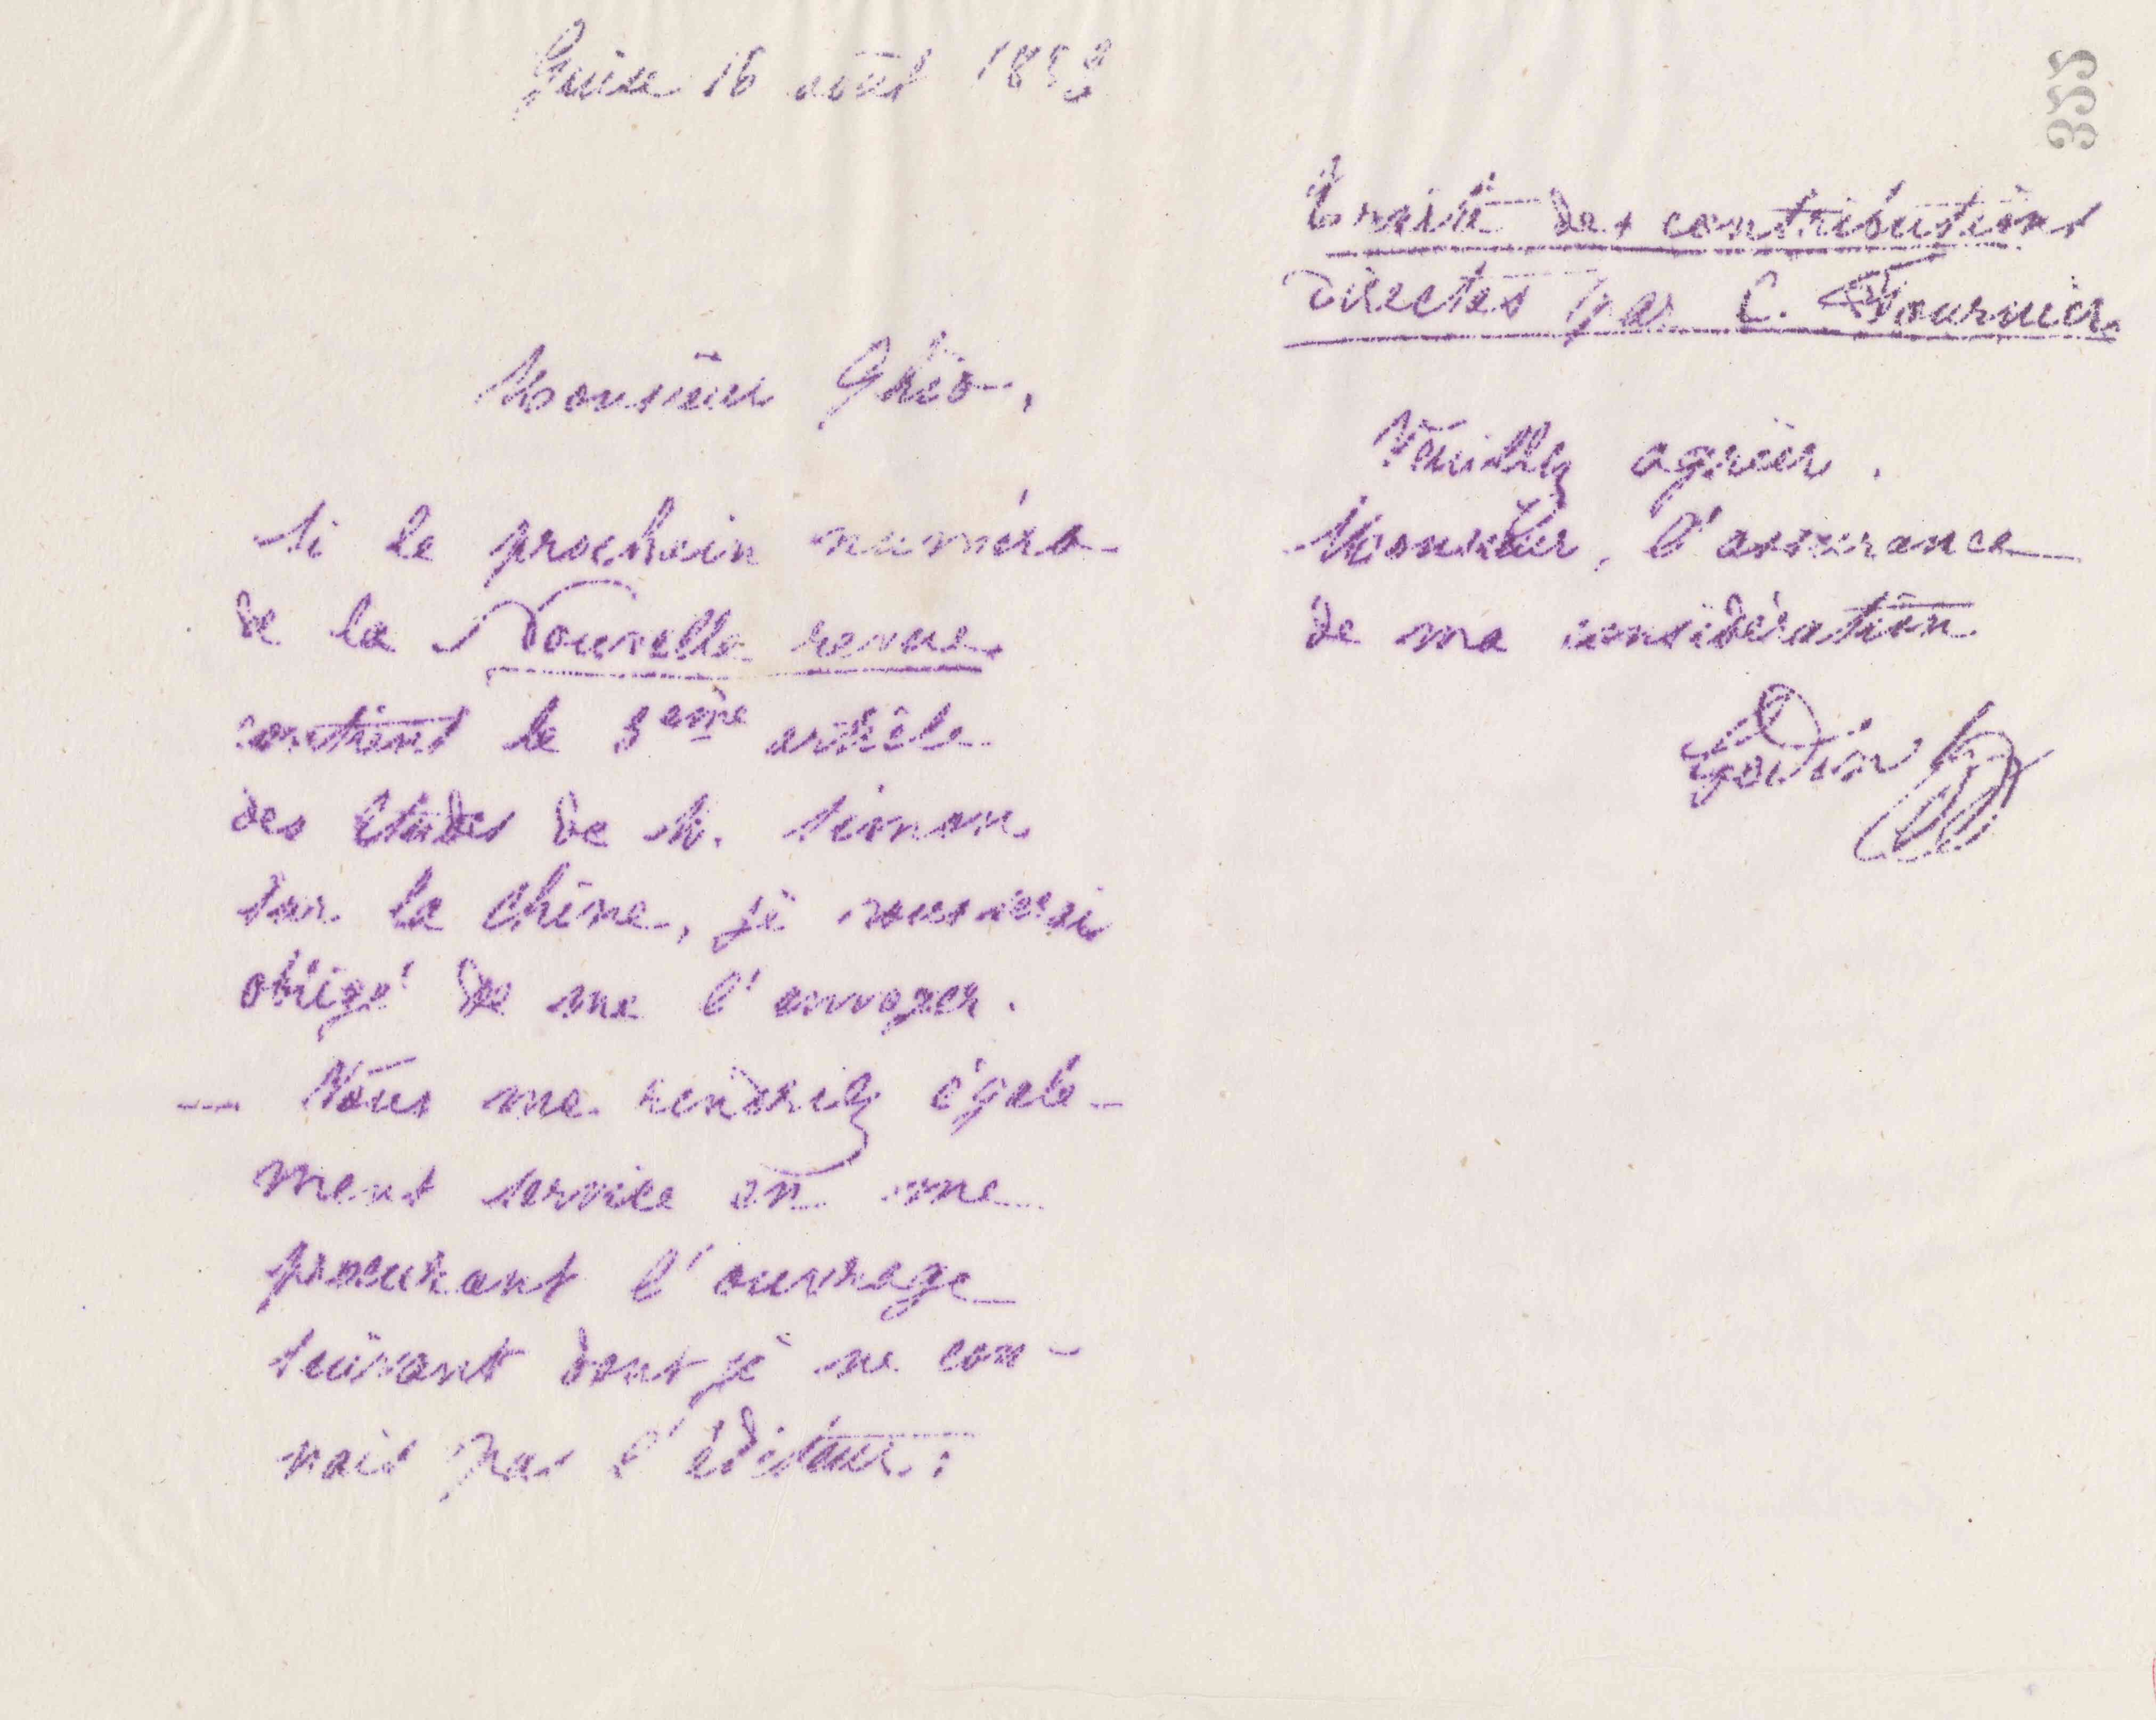 Guise 16 août 1883
Monsieur Ghio,
Si le prochain numéro
de la Nouvelle revue
contient le 3eme article
des études de M. Simon
sur la Chine, je vous serai
obligé de me l'envoyer.
— Vous me rendriez égale-
ment service en me
procurant l'ouvrage
suivant dont je ne con-
nais pas l'éditeur:
355
Traité des contributions
directes par C. Fournier.
Veuillez agréer,
Monsieur, l'assurance
de ma considération
Godin